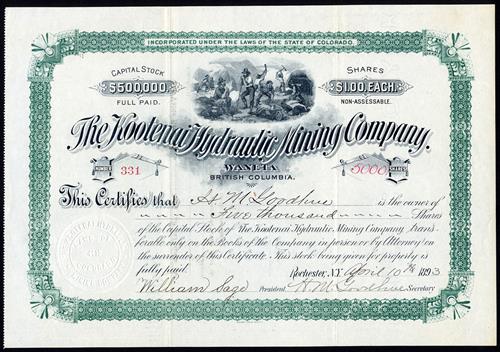 INCORPORATED UNDER THE LAWS OF THE STATE OF COLORADO.
CAPITAL STOCK SHARES
$500,000. $1.00, EACH.
FULL PAID. NON-ASSESSABLE.
The Kootenai Hydraulic Mining Company.
WANETA
BRITISH COLUMBIA.
NUMBER 331 5000 SHARES
This Certifies that H M Goodhue is the owner of
Five thousand Shares
of the Capital Stock of The Kootenai Hydraulic Mining Company, trans-
ferable only on the Books of the Company in person or by Attorney on
the surrender of this Certificate. This stock being given for property is
fully paid. Rochester, N.Y. April 10th 1893
William Sage President. H. M. Goodhue Secretary